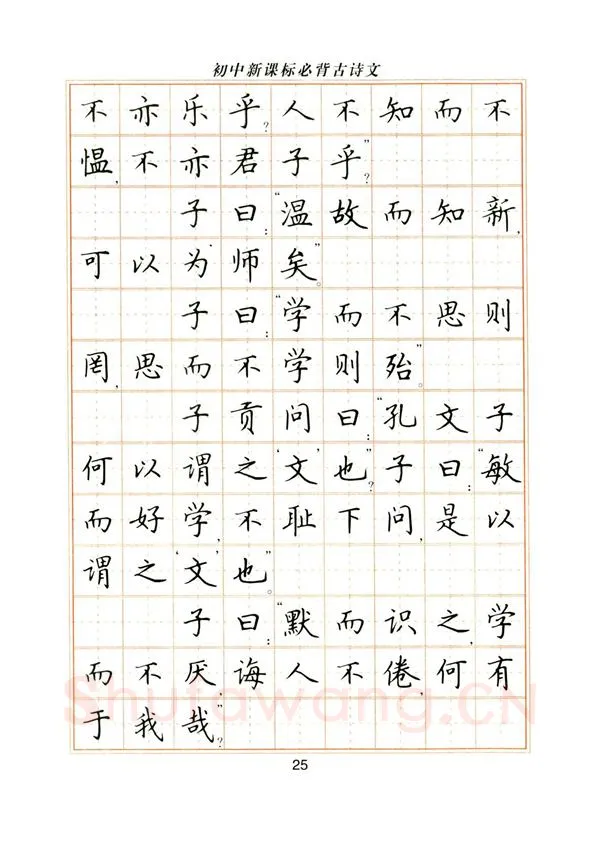 初中新课标必背古诗文
不亦乐乎?人不知而不
愠,不亦君子乎”?
子曰:“温故而知新,
可以为师矣”。
子曰:“学而不思则
罔,思而不学则殆”。
子贡问曰:“孔文子
何以谓之‘文’也”?子曰:“敏
而好学,不耻下问,是以
谓之‘文’也”。
子曰:“默而识之,学
而不厌,诲人不倦,何有
于我哉”?
Shufawang.CN
25